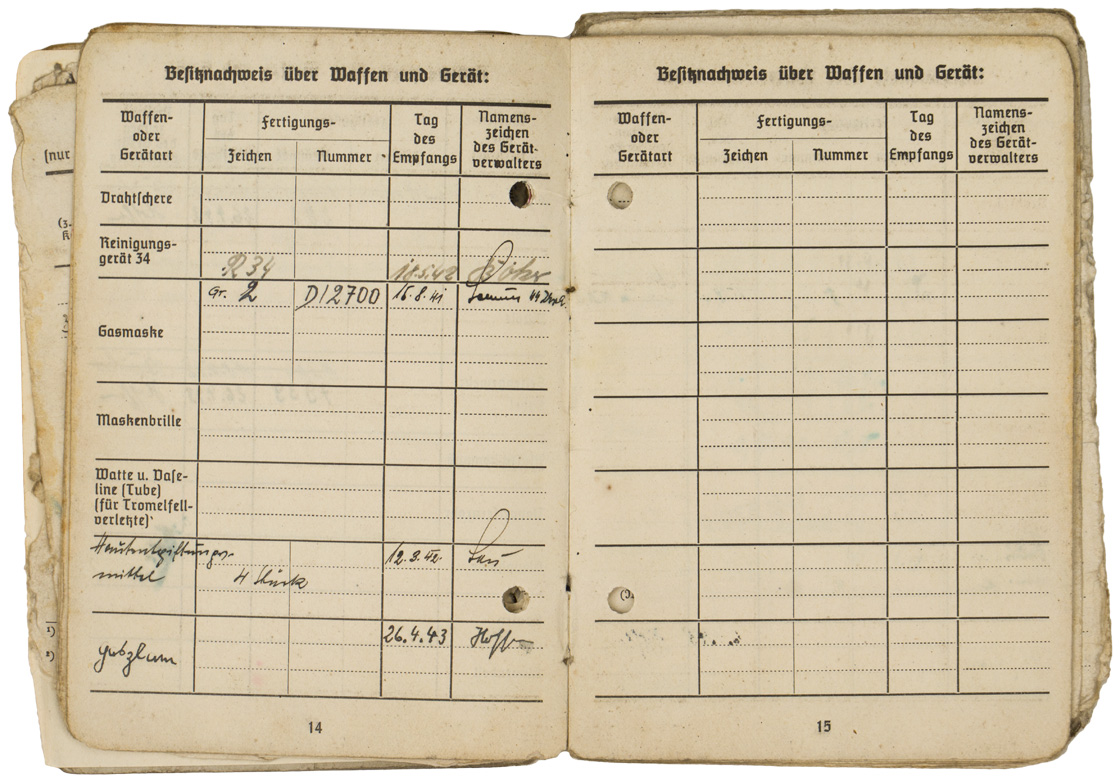 Besitznachweis über Waffen und Gerät:
Waffen-
oder
Gerätart
Fertigungs-
Zeichen
Nummer
Tag
des
Empfangs
Namens-
zeichen
des Gerät-
verwalters
Drahtschere
Reinigungs-
gerät 34
R 34
18.5.42
Gasmaske
Gr. 2
D12700
15.8.41
Maskenbrille
Watte u. Vase-
line (Tube)
(für Tromelfell-
verletzte)
Hautentgiftungs-
mittel
4 Stück
12.3.42.
26.4.43
14
Besitznachweis über Waffen und Gerät:
Waffen-
oder
Gerätart
Fertigungs-
Zeichen
Nummer
Tag
des
Empfangs
Namens-
zeichen
des Gerät-
verwalters
15
(nur